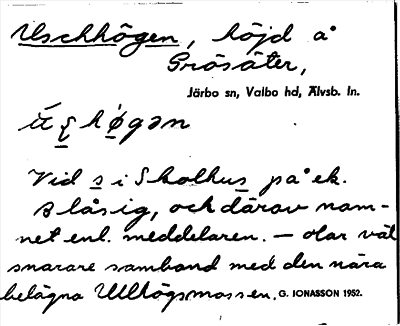 Uschhögen, höjd å
Grösäter,
Järbo sn, Valbo hd, Älvsb. ln.
Vid s i Skolhus på ek.
s låsig, och därav nam-
net enl. meddelaren. – Har väl
snarare samband med den nära
belägna Ullhögsmossen. G. IONASSON 1952.